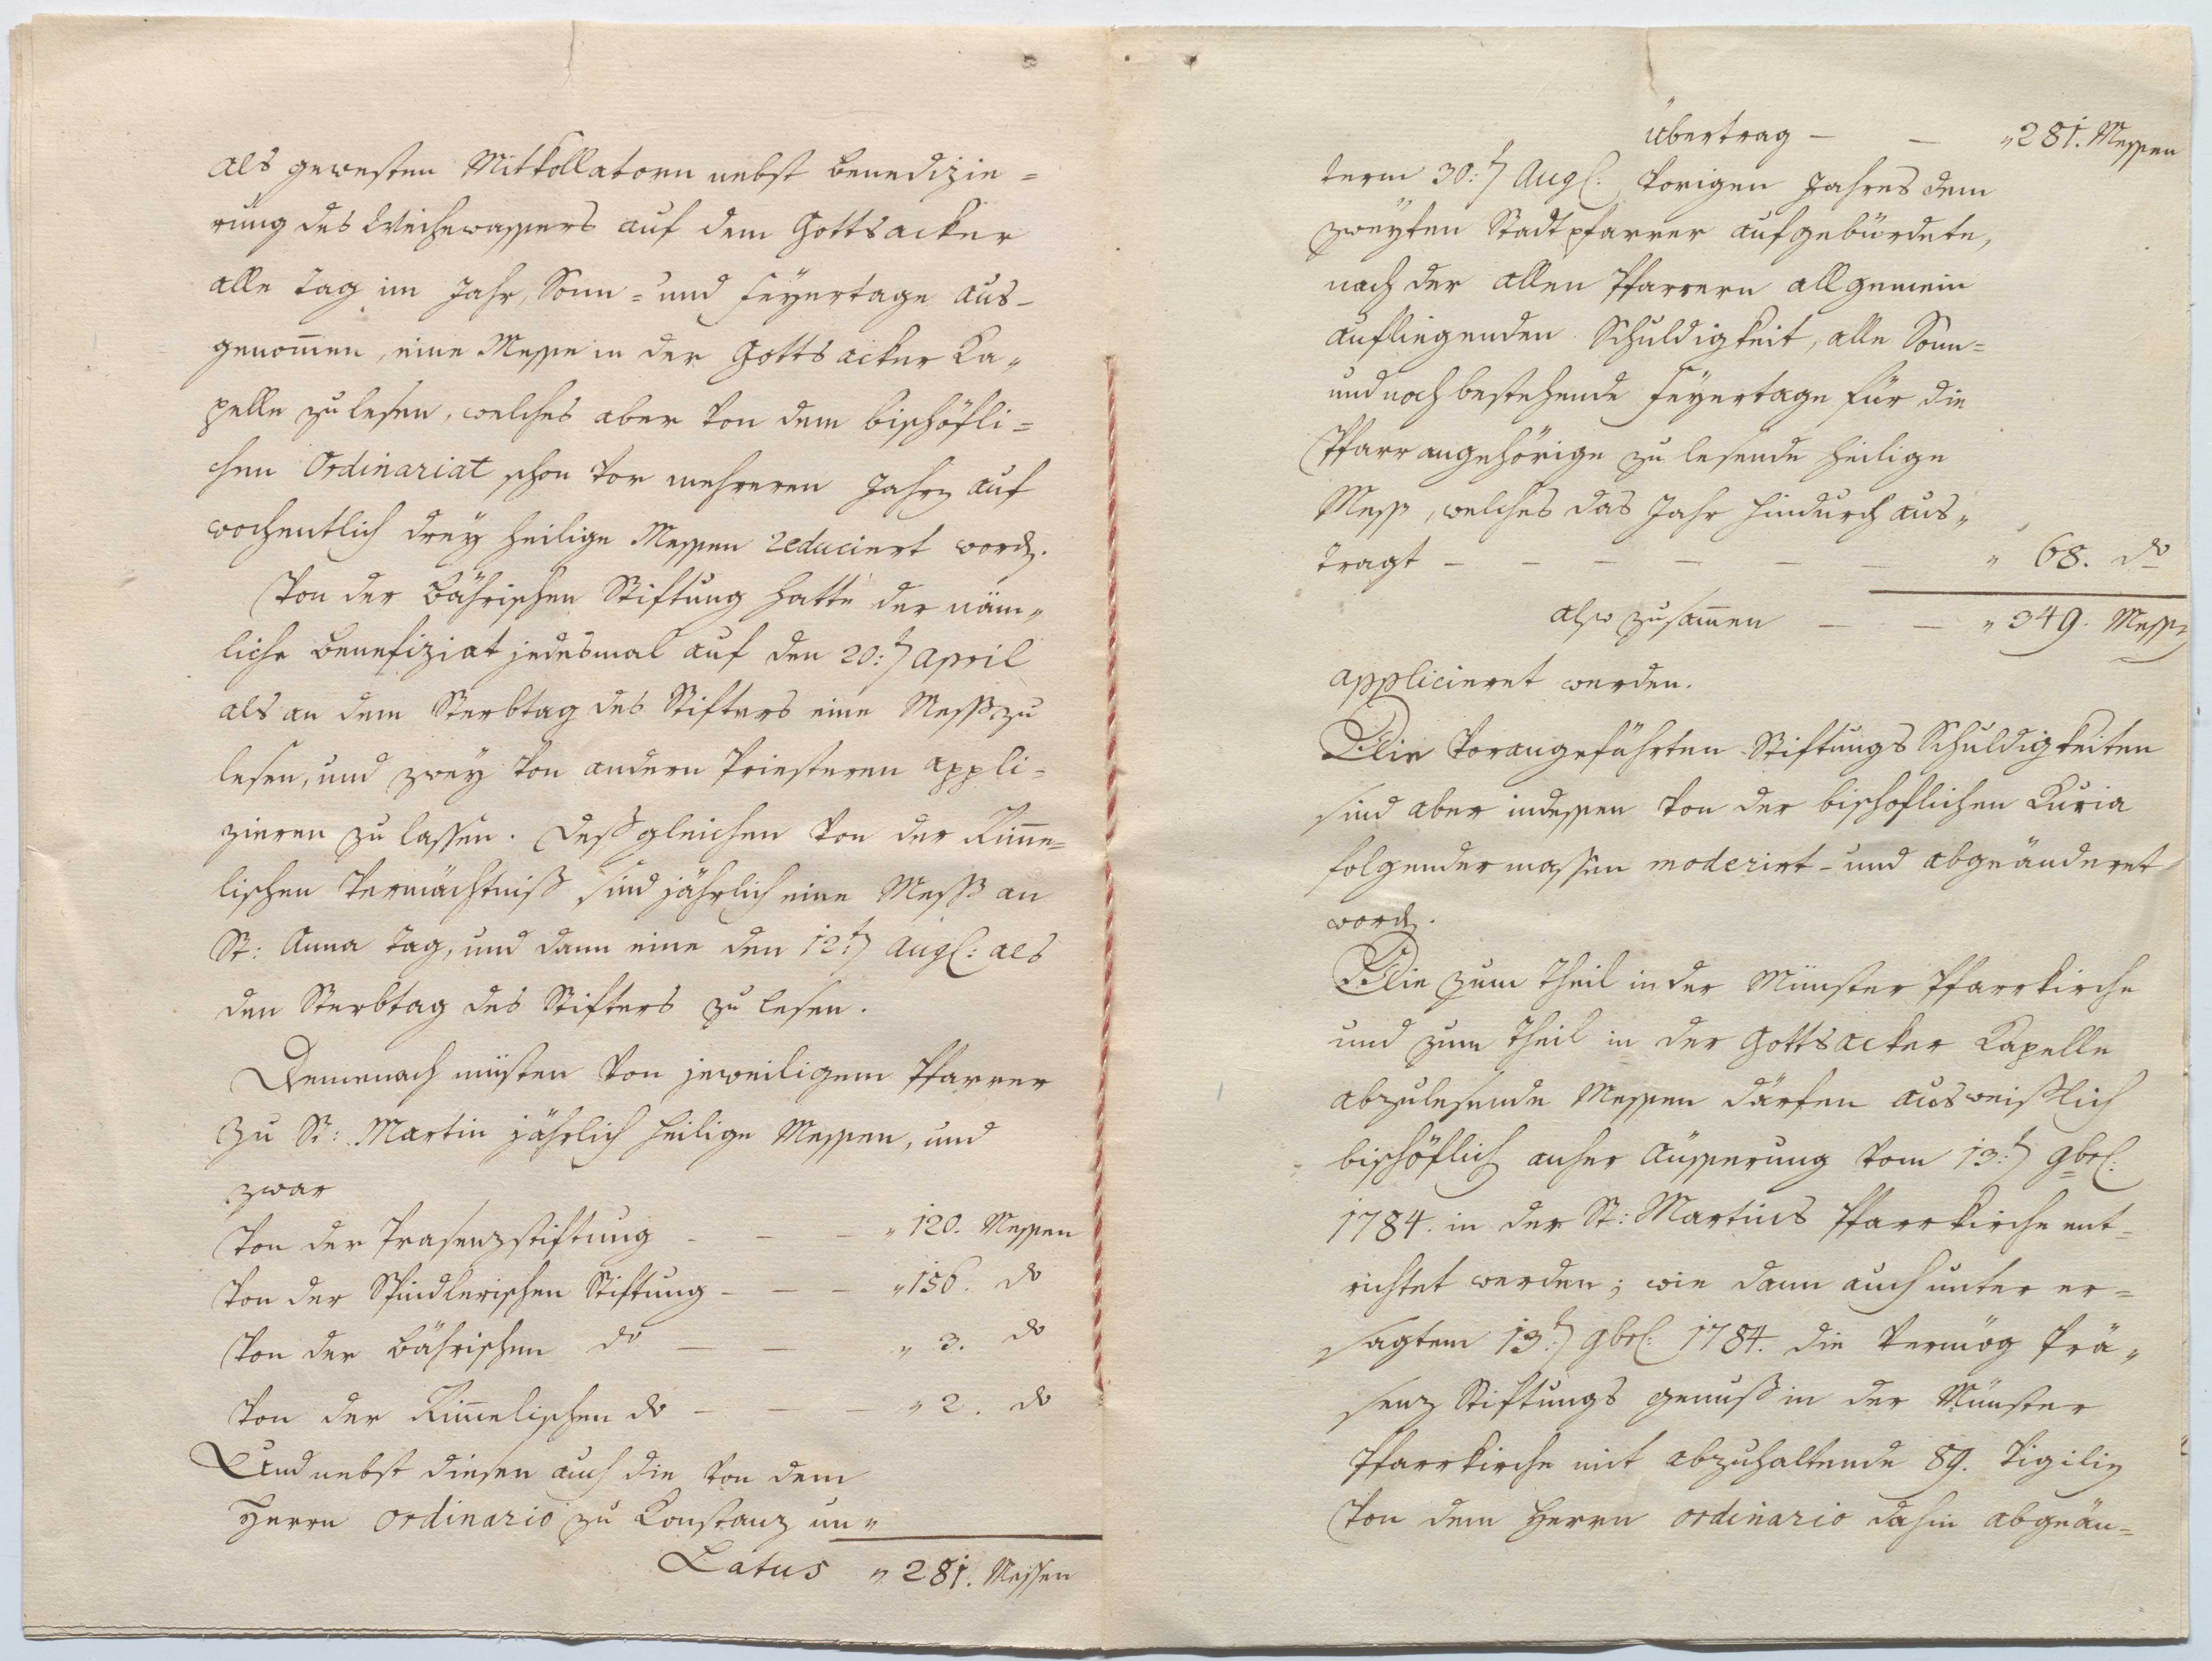 als gewesten Mitkollatorn nebst benedizie=
rung des Weihewassers auf dem Gottsacker
alle Tag im Jahr, Sonn= und Feyertage aus=
genom̅en, eine Messe in der Gottsacker Ka„
pelle zu lesen, welches aber von dem bischöfli=
chen Ordinariat schon vor mehreren Jahrn auf
wochentlich drey heilige Messen reduciert word.
Von der Bährischen Stiftung hatte der näm„
liche Benefiziat jedesmal auf den 20:t April
als an dem Sterbtag des Stifters eine Meß zu
lesen, und zwey von andern Priesteren appli=
zieren zu lassen. Deßgleichen von der Kim̅e=
lischen Vermächtniß sind jährlich eine Meß an
St: Anna Tag, und dann eine den 12:t Aug: als
den Sterbtag des Stifters zu lesen.
Demenach müsten von jeweiligem Pfarrer
zu St: Martin jährlich heilige Messen, und
zwar
Von der Präsenzstiftung - - - „ 120. Messen
Von der Spindlerischen Stiftung - - - „ 156. do
Von der Bährischen do - - „ 3. do
Von der Kim̅elischen do - - - „ 2. do
Und nebst diesen auch die von dem
Herrn Ordinario zu Konstanz un„
Latus „ 281. Messen
Übertrag - - „ 281. Messen
term 30:t Aug: vorigen Jahres dem
zweyten Stadtpfarrer aufgebürdete,
nach der allen Pfarrern allgemein
aufliegenden Schuldigkeit, alle Sonn=
und noch bestehende Feyertage für die
Pfarrangehörige zu lesende heilige
Mess, welches das Jahr hindurch aus„
tragt - - - - - - „ 68. do
also zusam̅en - - „ 349. Messn
applicieret werden.
Die vorangeführten Stiftungs Schuldigkeiten
sind aber indessen von der bischoflichen Kuria
folgendermassen moderirt- und abgeänderet
word.
Die zum Theil in der Münster Pfarrkirche
und zum Theil in der Gottsacker Kapelle
abzulesende Messen därfen ausweißlich
bischöflich anher Äusserung vom 13:t 9br:
1784. in der St: Martins Pfarrkirche ent=
richtet werden; wie dann auch unter er=
sagtem 13:t 9br: 1784. die vermög Prä„
senz Stiftungs genuß in der Münster
Pfarrkirche mit abzuhaltende 89. Vigilin
von dem Herrn Ordinario dahin abgeän=